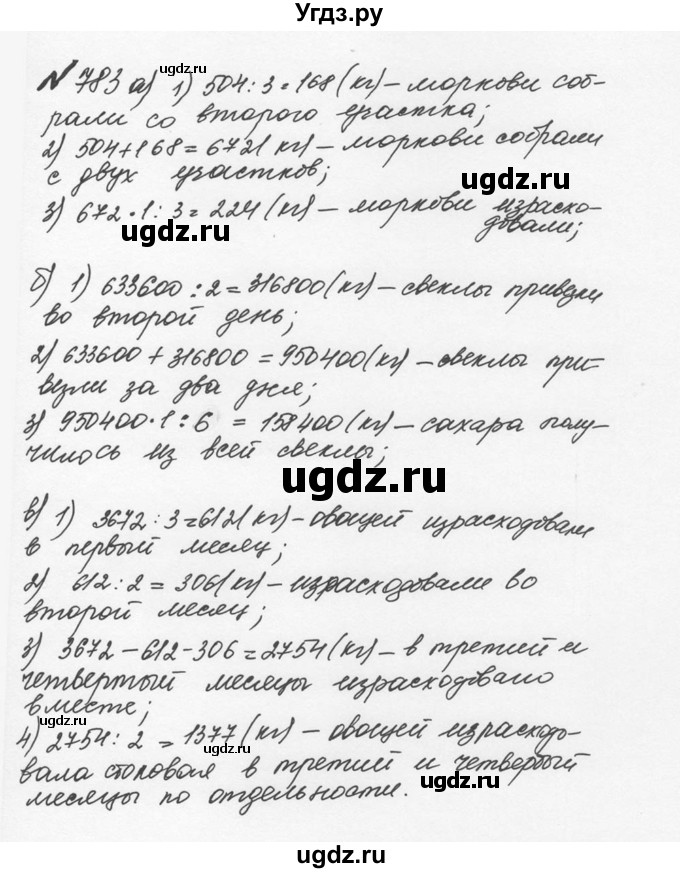 Угдз.ру
№783 а) 1) 504:3=168(кг) – моркови соб-
рали со второго участка;
2) 504+168=672(кг) – моркови собрали
с двух участков;
3) 672·1:3=224(кг) – моркови израсхо-
довали;
б) 1) 633600:2=316800(кг) – свеклы привезли
во второй день;
2) 633600+316800=950400(кг) – свеклы при-
везли за два дня;
3) 950400·1:6=158400(кг) – сахара полу-
чилось из всей свеклы;
в) 1) 3672:3=612(кг) – овощей израсходовали
в первый месяц;
2) 612:2=306(кг) – израсходовали во
второй месяц;
3) 3672-612-306=2754(кг) – в третий и
четвертый месяцы израсходовано
вместе;
4) 2754:2=1377(кг) – овощей израсходо-
вала столовая в третий и четвертый
месяцы по отдельности.
ugdz.ru
ugdz.ru
ugdz.ru
ugdz.ru
ugdz.ru
ugdz.ru
ugdz.ru
ugdz.ru
ugdz.ru